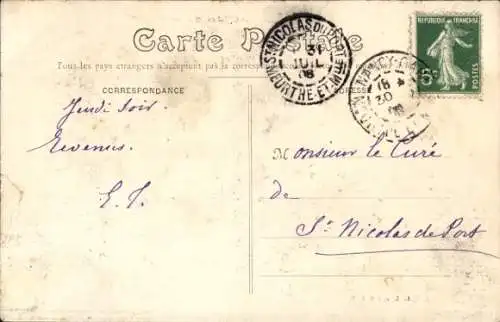 Carte Postale
Tous les pays étrangers n'acceptent pas la correspondance
CORRESPONDANCE
ST NICOLAS DU PORT
31
JUIL
08
MEURTHE-ET-MLLE
REPUBLIQUE FRANÇAISE
5c
POSTES
30
08
Jeudi soir
Revenus.
Monsieur le Curé
de
St Nicolas de Port